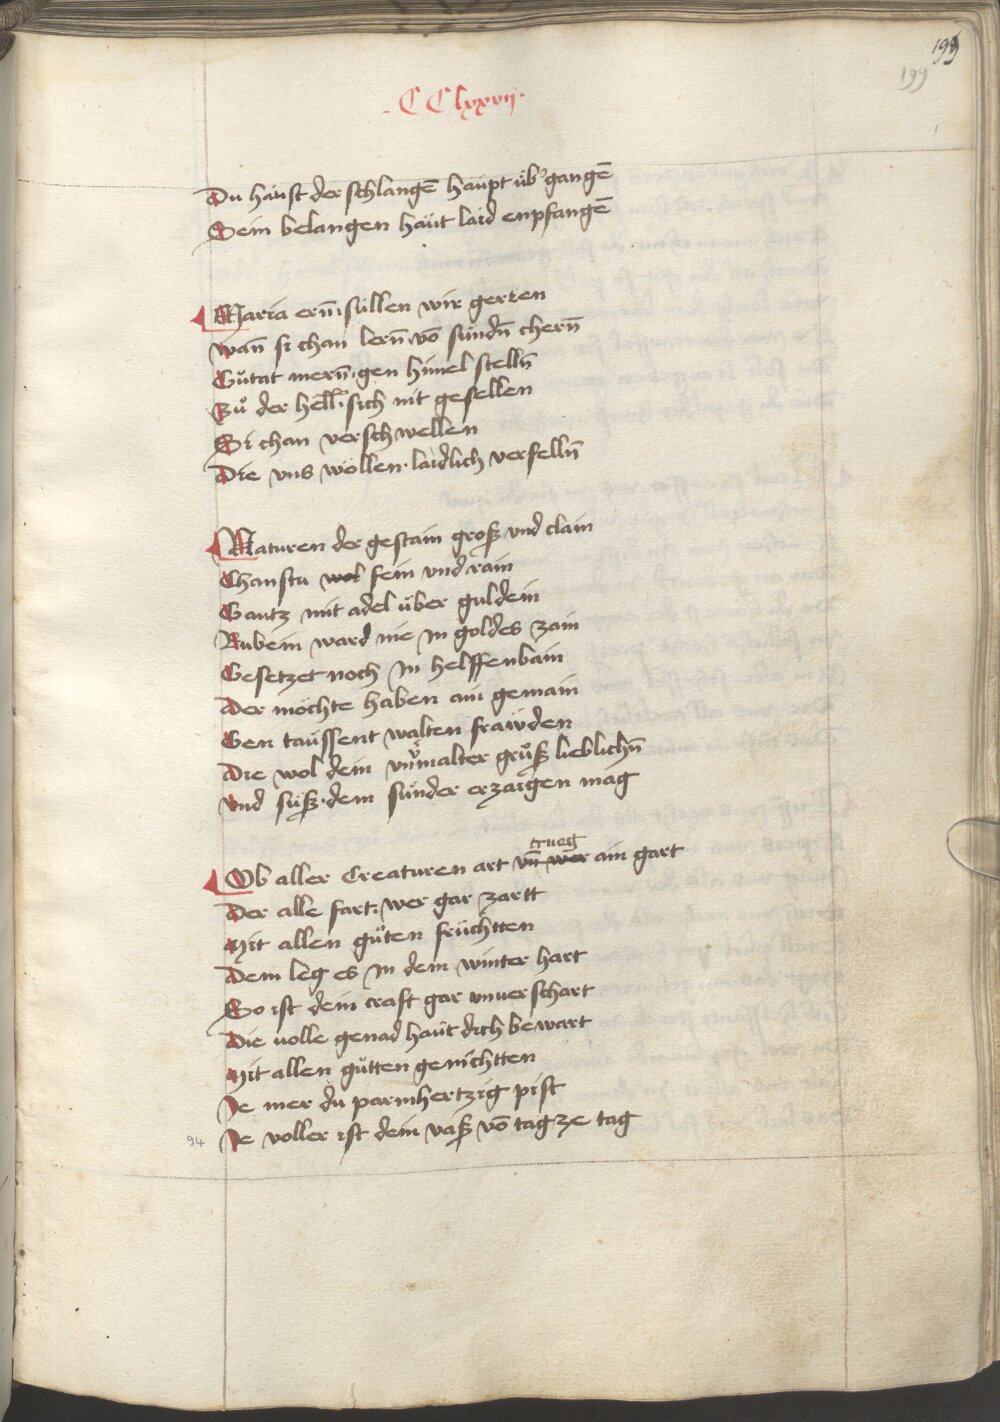 199
199
.CClxxvij.
Du haust der schlangē haupt übʼgangē
Sein belangen haut laid enpfangē
Maria ern̄ süllen wir gerten
wan̄ si chan lern̄ võ sündn̄ chern̄
Gůtat mern̄ gen himel stelln̄
Zů der hell sich nit gesellen
Si chan verschwellen
Die vns wöllen laidlich verfelln̄
Naturen der gestain groß vnd clain
Chanstu wol fein vnd rain
Gantz mit adel über guldein
Rubein ward nie in goldes zain
Gesetzet noch in helffenbain
Der möchte haben ain gemain
Gen taussent walten fräwden
Die wol dein vnvʼmalter grůß lieblichn̄
vnd süß dem sünder erzaigen mag
trueg
Ob aller Creaturen art vn̄ wer ain gart
Der alle fart wer gar zartt
Mit allen gůten früchtten
Dem leg es in dem winter hart
So ist dein craft gar vnuerschart
Die uolle genad haut dich bewart
Mit allen gůtten genichtten
Je mer du parmhertzig pist
94 Je voller ist dein vaß võ tag ze tag